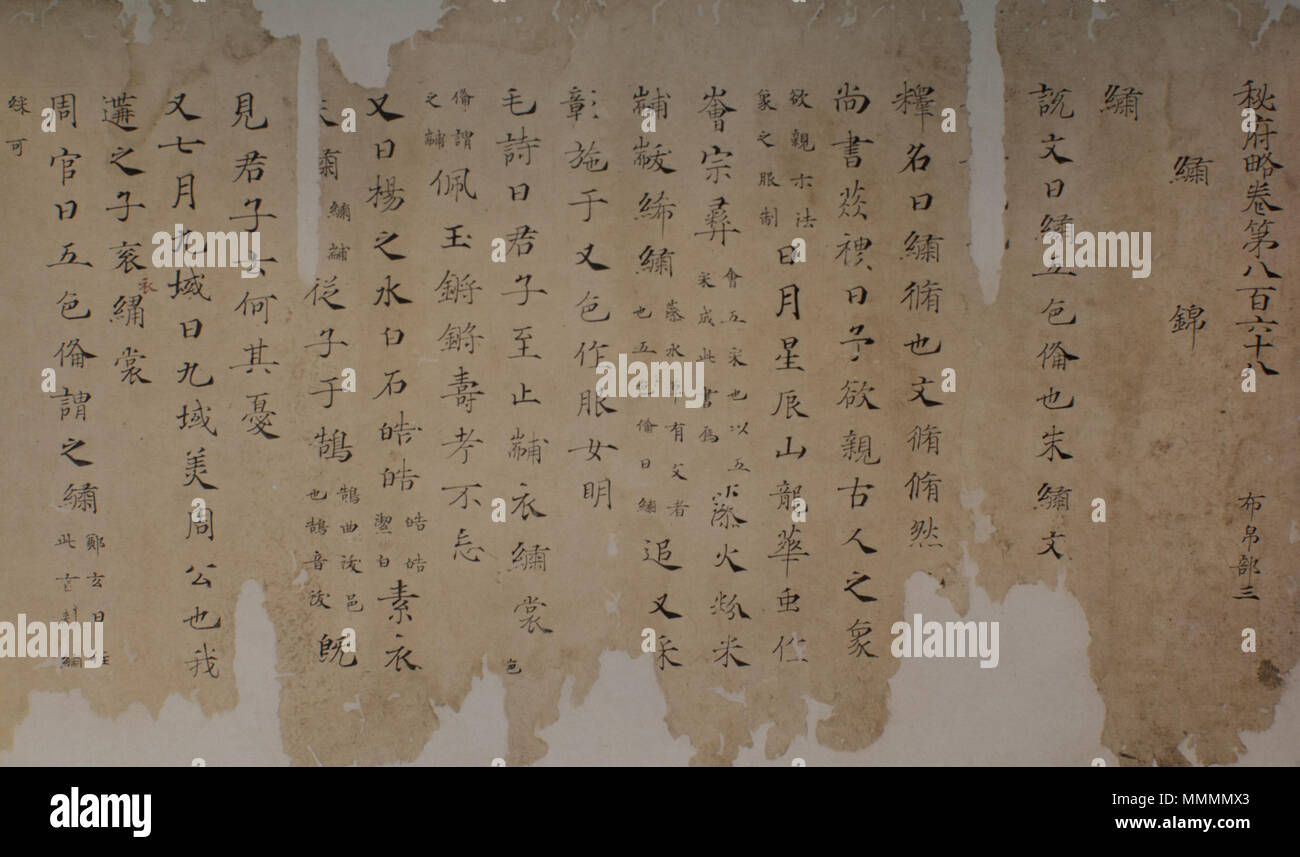 秘府略卷第八百六十八 布帛部三
繡 錦
繡
說文曰繡五色俻也朱繡文
釋名曰繡脩也文脩脩然
尚書益稷曰予欲親古人之象
欲親示法
象之服制
日月星辰山龍華虫作
會宗彝
會五采也以五
采成此畫焉
藻火粉米
黼黻絺繡
葛
有文者
也五色俻曰繡
追又采
彰施于又色作服女明
毛詩曰君子至止黼衣繡裳
色
俻謂
之黼
佩玉鏘鏘壽考不忘
又曰楊之水白石皓皓
皓皓
潔白
素衣
朱繡
繡黼
從子于鵠
鵠曲沃邑
也鵠音沃
既
見君子云何其憂
又七月九域曰九域美周公也我
遘之子衮繡裳
衣
周官曰五色俻謂之繡
鄭玄曰
此言刺繡
綵可
alamy
Image ID: MMMMX3
www.alamy.com